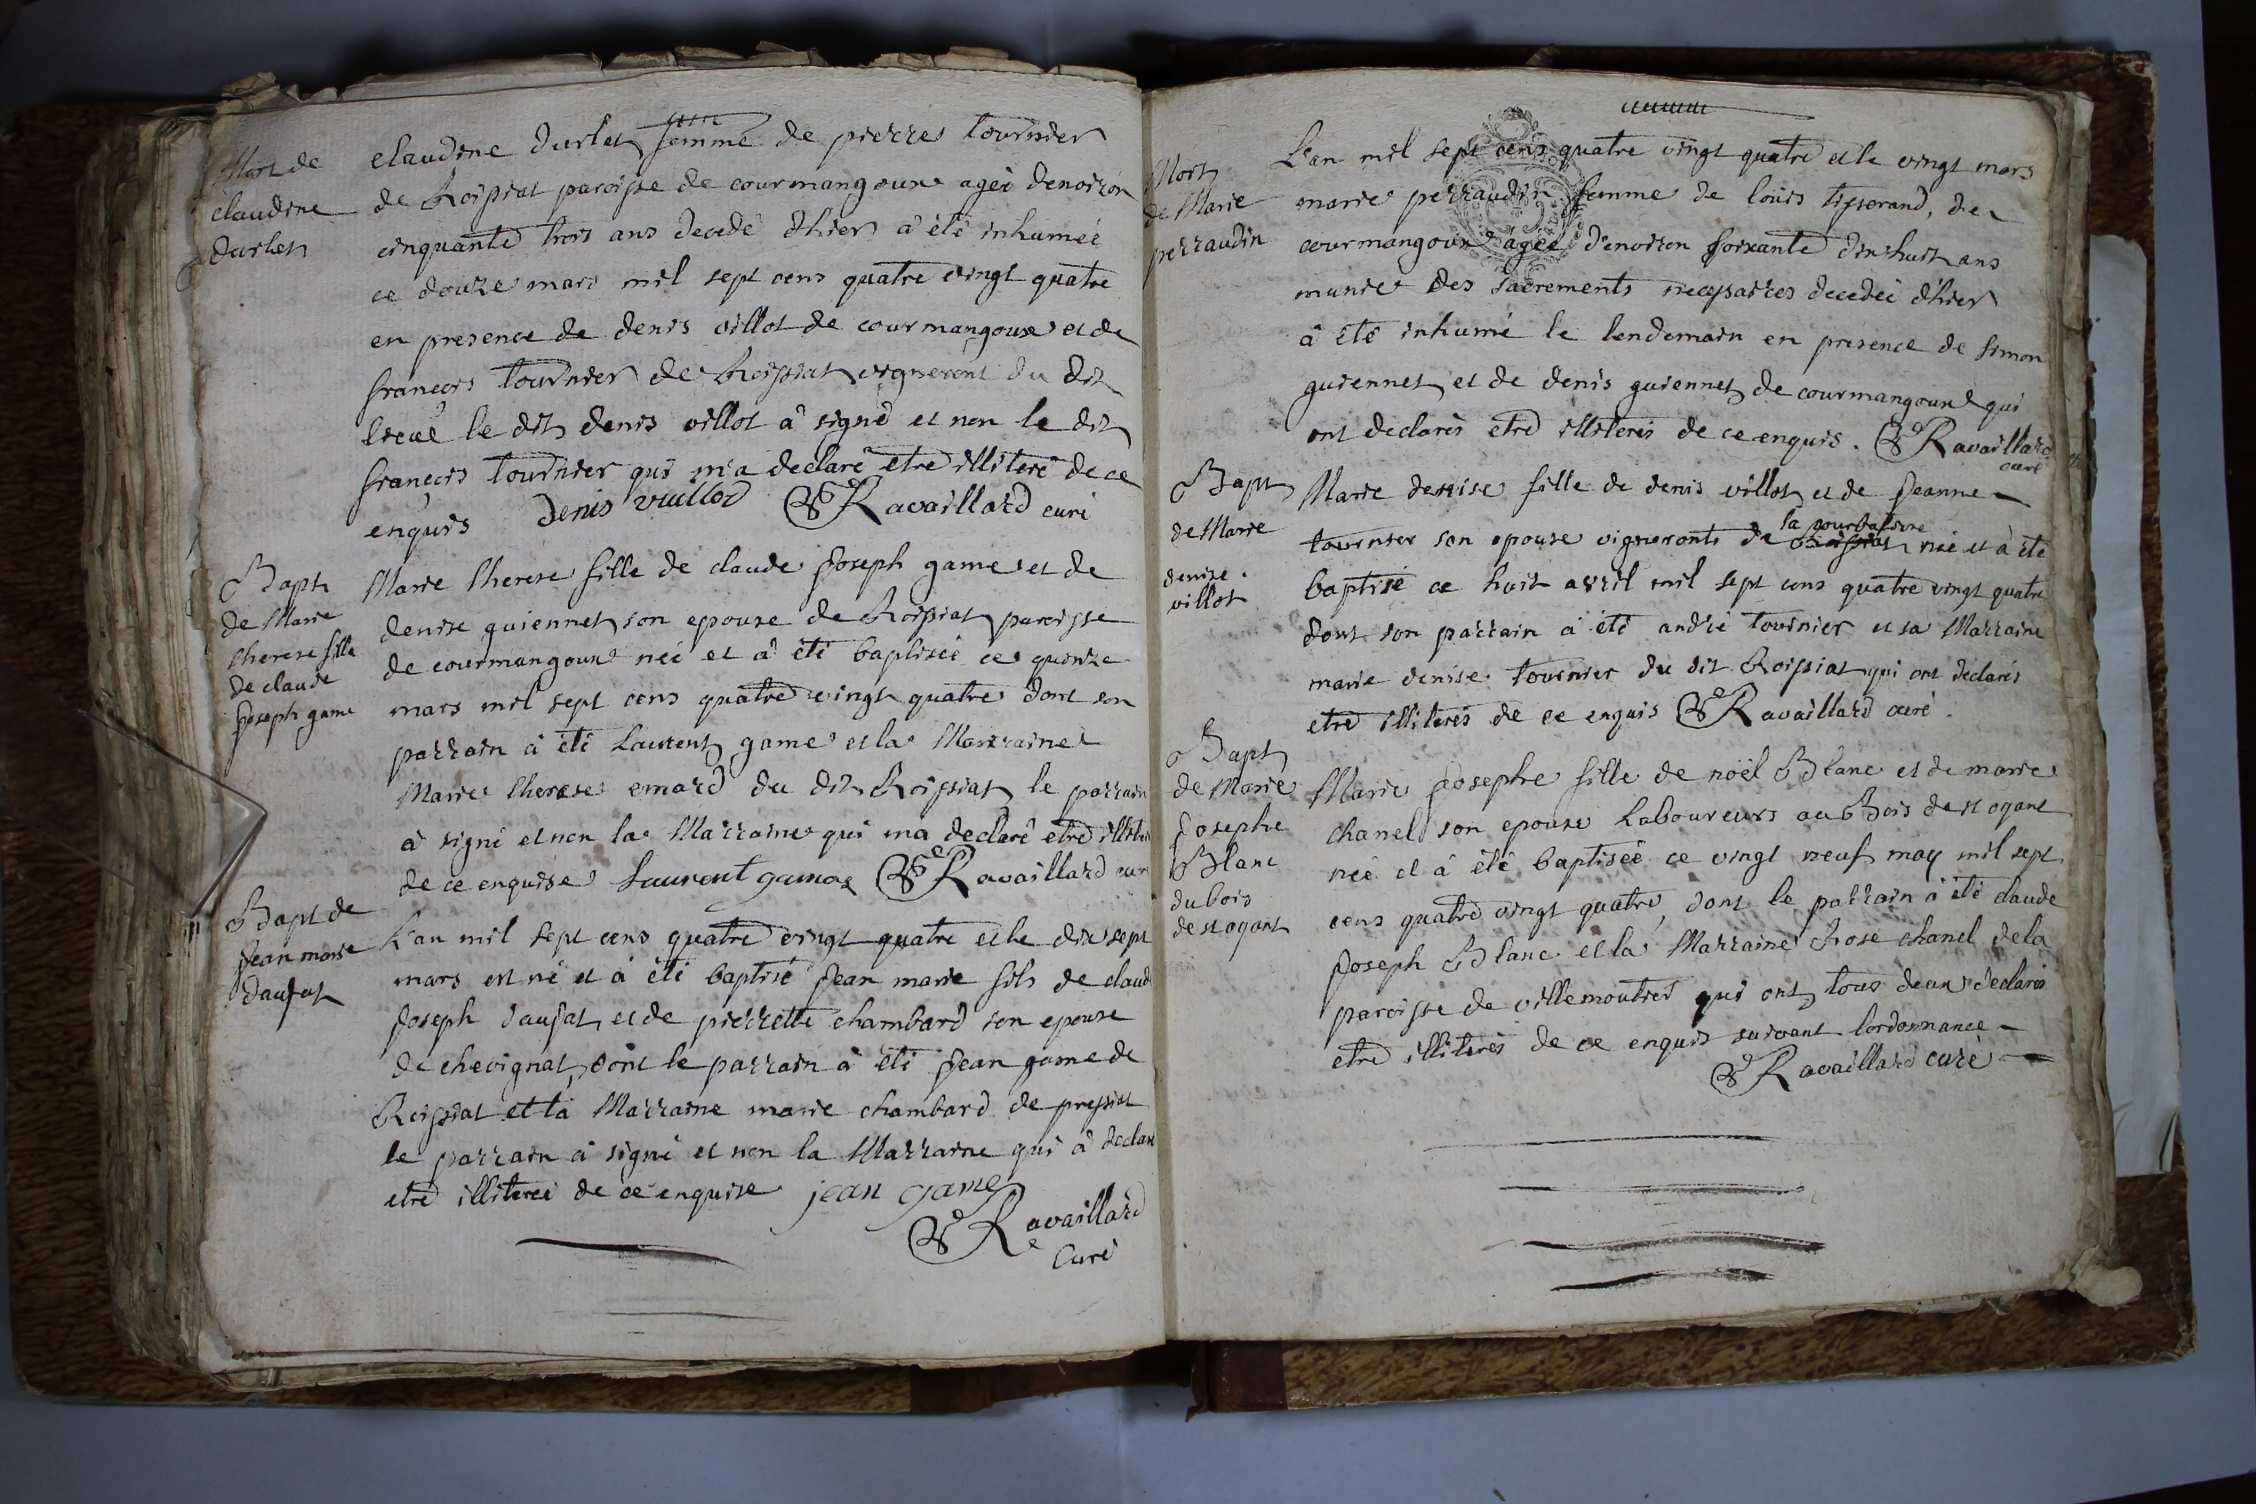 Mort de
claudine
durlet
claudine durlet femme de pierres tournier
de Roissiat paroisse de courmangoux ageé denviron
cinquante trois ans decedé d'hier a été inhumeé
ce douze mars mil sept cens quatre vingt quatre
en presence de denis villot de courmangoux et de
francois tournier de Roissiat vigneront du dit
lieux le dit denis villot â signé et non le dit
francois tournier qui m'a declaré etre illiteré de ce
enquis Denis vuillod Ravaillard curé
Bapt
de Marie
therese fille
de claude
Joseph game
Marie therese fille de claude Joseph game et de
denise guiennet son epouse de Roissiat paroisse
de courmangoux neé et â été baptiseé ce quinze
mars mil sept cens quatre vingt quatre dont son
parrain â été Laurent game et la Marraine
Marie therese emard du dit Roissiat le parrain
â signé et non la Marraine qui ma declaré etre
de ce enquise Laurent game Ravaillard
Bapt de
Jean marie
daujat
L'an mil sept cens quatre vingt quatre et le dix sept
mars est né et â été baptisé Jean marie fils de claude
Joseph daujat et de pierrette chambard son epouse
de chevignat, dont le parrain â été Jean game de
Roissiat et la Marraine marie chambard de pressiat
le parrain â signé et non la Marraine qui â declaré
etre illitereé de ce enquise jean game
Ravaillard
Curé
Mort
de Marie
perraudin
L'an mil sept cens quatre vingt quatre et le vingt mars
marie perraudin femme de louis tisserand, de
courmangoux ageé d'enviren soixante dix huit ans
munie des sacrements necessaires decedeé d'hier
â été inhumé le lendemain en presence de simon
guiennet et de denis guiennet de courmangoux qui
ont declarés etre illiterés de ce enquis. Ravaillard
curé
Bapt
de Marie
denise
villot
Marie denise fille de denis villot et de Jeanne
la
tournier son epouse vigneronts de Roissiat neé et â été
baptisé ce huit avril mil sept cens quatre vingt quatre
dont son parrain â été andré tournier et sa Marraine
marie denise tournier du dit Roissiat qui ont declarés
etre illiterés de ce enquis Ravaillard curé.
Bapt
de Marie
Josephe
Blanc
du bois
de st oyant
Marie Josephe fille de noël Blanc et de marie
chanel son epouse Laboureurs au Bois de st oyant
neé et â été baptiseé ce vingt neuf may mil sept
cens quatre vingt quatre, dont le parrain â été claude
Joseph Blanc et la Marraine Rose chanel de la
paroisse de villemoutier qui ont tous deux declarés
etre illiterés de ce enquis suivant lordonnance
Ravaillard curé